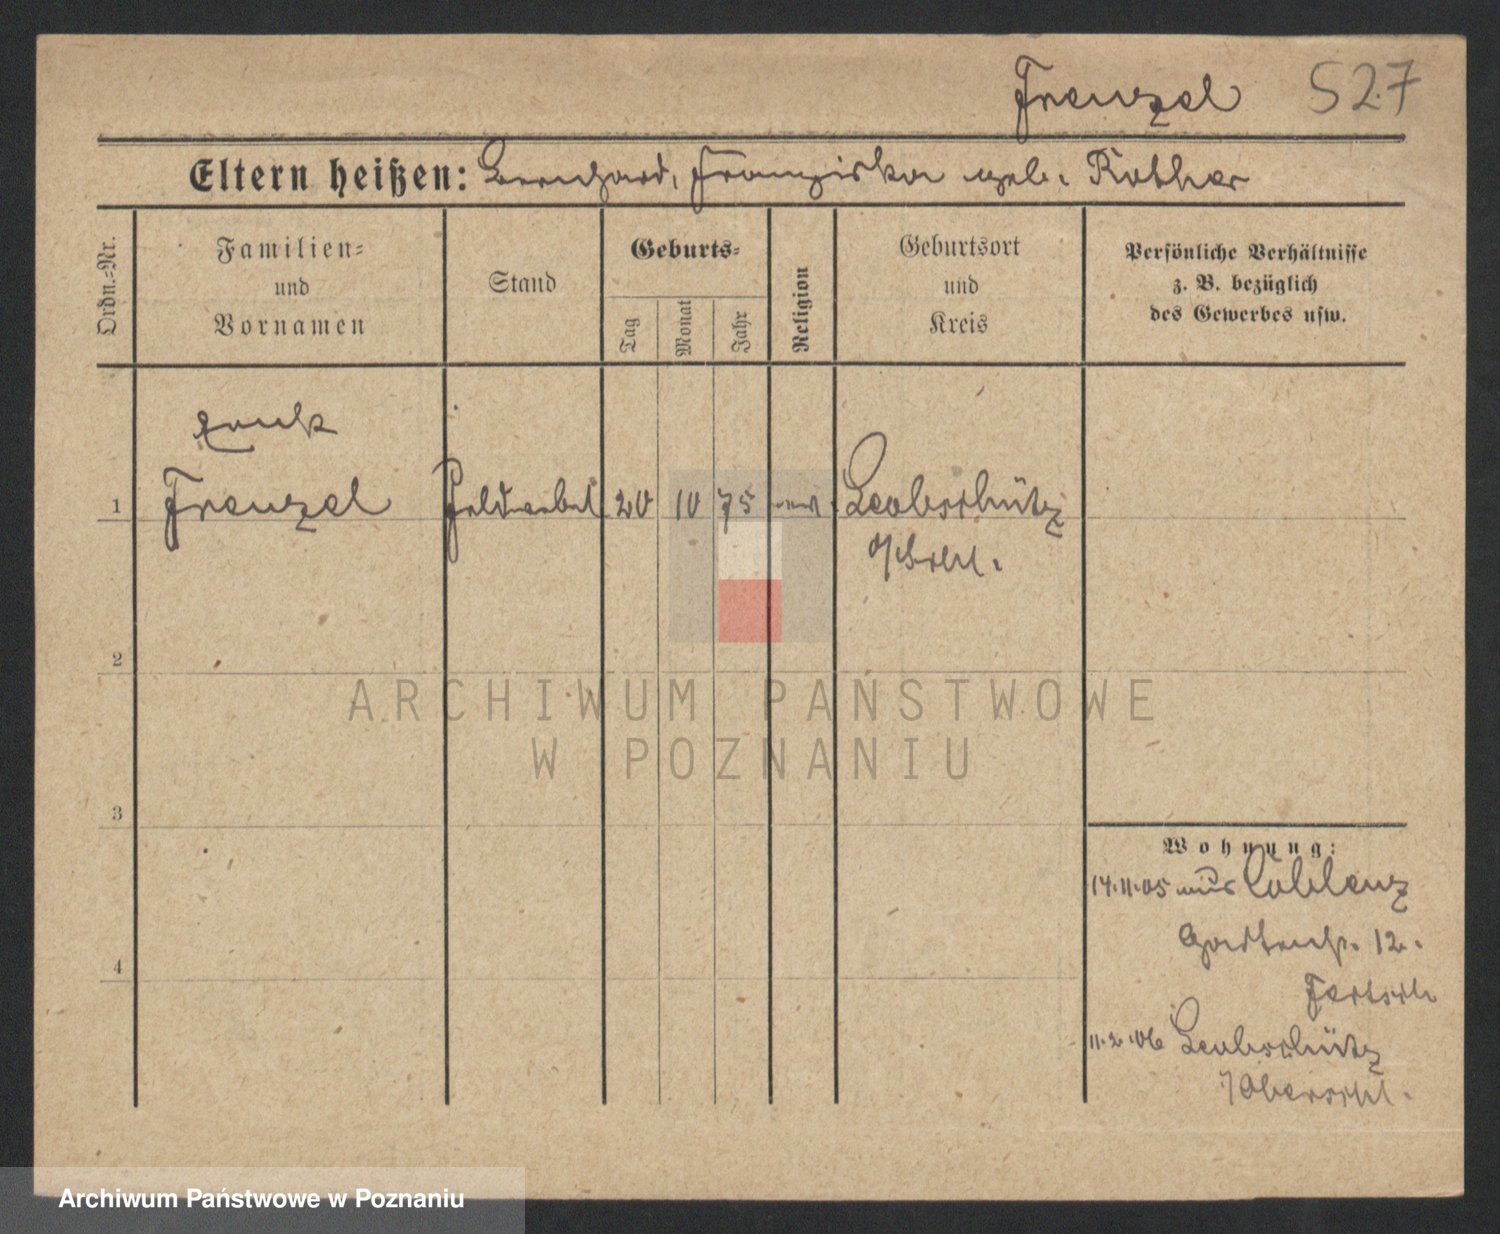 Frenzel 527
Eltern heißen: Bernhard, Franziska geb. Rother
Ordn.=Nr.
Familien=
und
Vornamen
Stand
Geburts=
Tag
Monat
Jahr
Religion
Geburtsort
und
Kreis
Persönliche Verhältnisse
z. B. bezüglich
des Gewerbes usw.
1
Frenzel Feldwebel 20 10 75 Leobschütz
O/Schl.
2
ARCHIWUM PAŃSTWOWE
W POZNANIU
3
Wohnung:
14.11.05 aus Coblenz
12.
Fertsch
4
11.2.06 Leobschütz
/Oberschl.
Archiwum Państwowe w Poznaniu